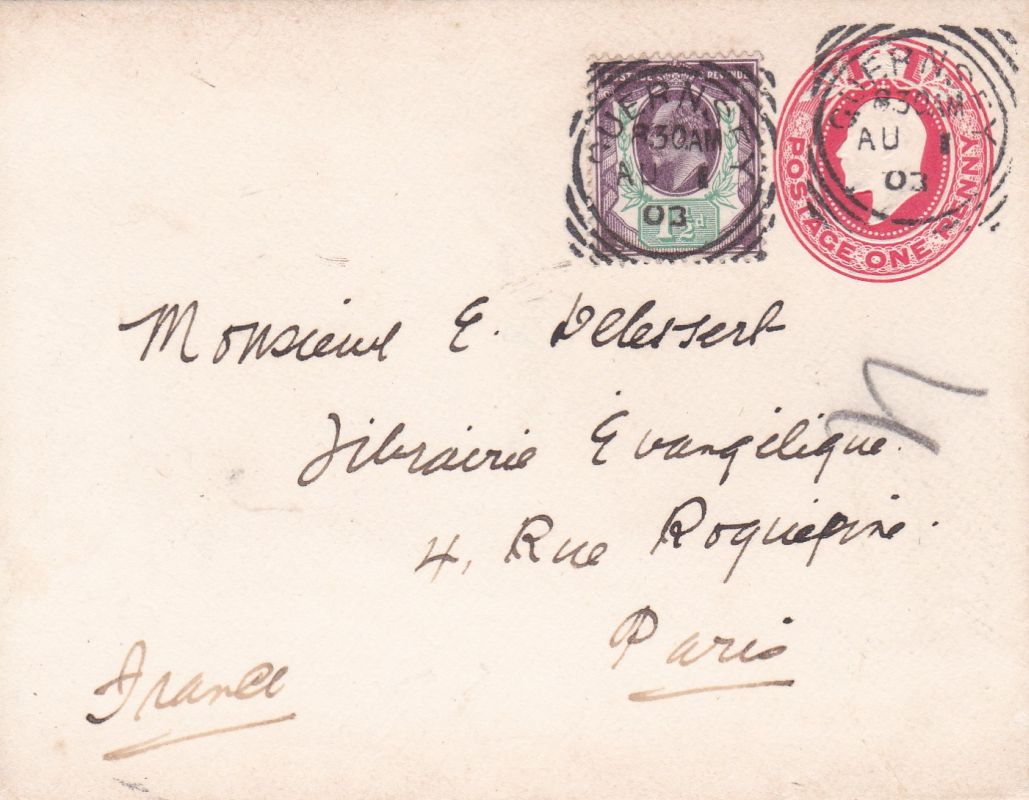 POSTAGE & REVENUE
1½d
GUERNSEY
8 30 AM
AU 1
03
POSTAGE ONE PENNY
GUERNSEY
8 30 AM
AU 1
03
Monsieur E. Delessert
Librairie Évangélique.
4, Rue Roquépine.
Paris
France